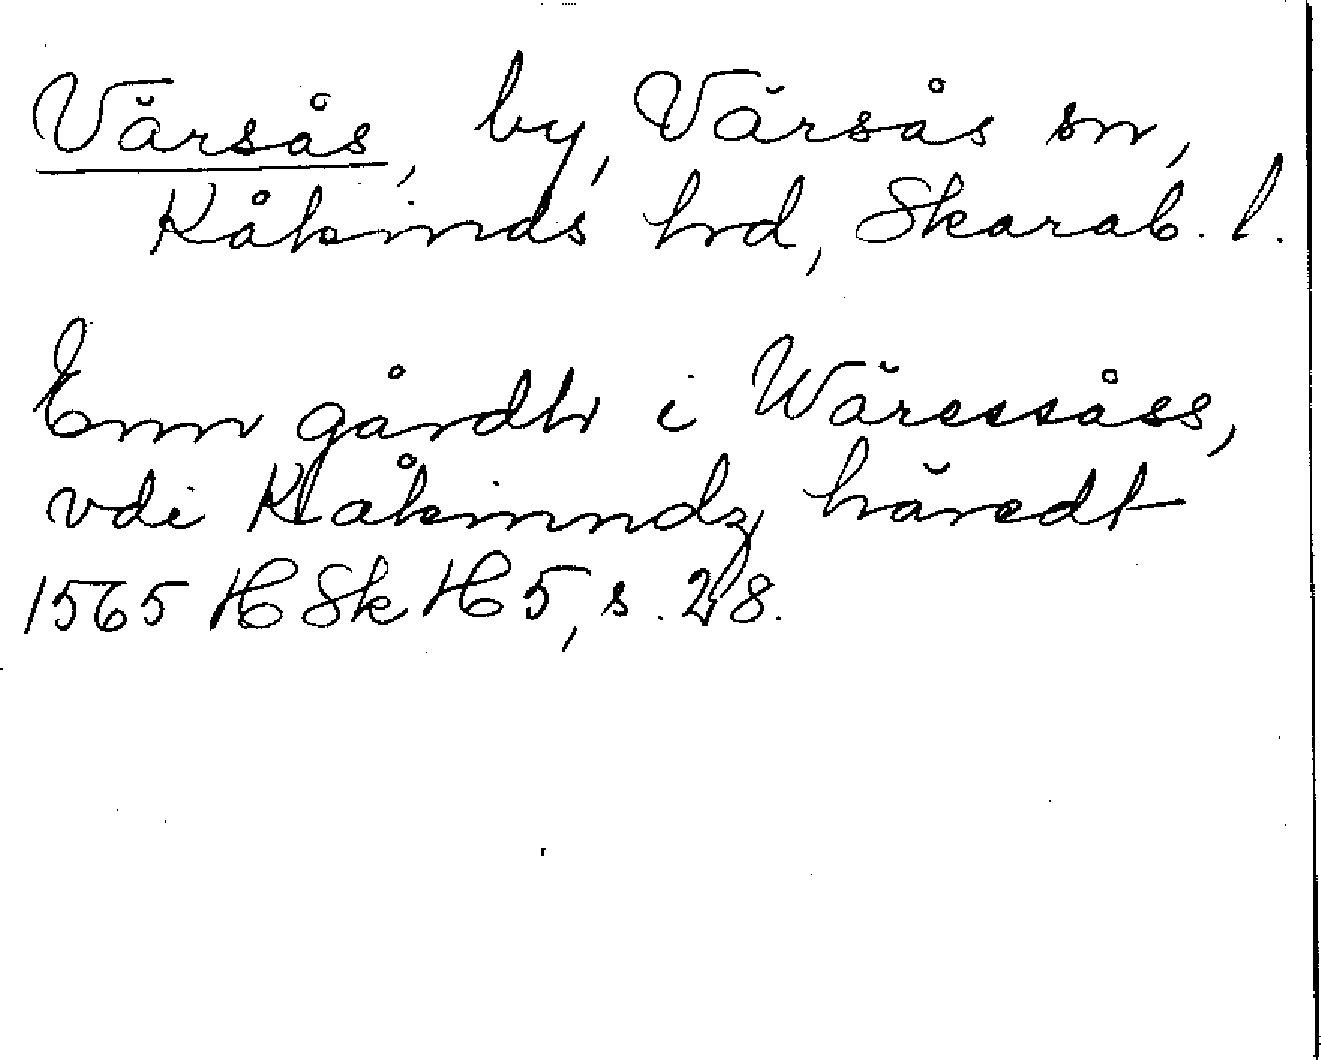 Värsås, by, Värsås sn,
Kåkinds hrd, Skarab. l.
Enn gårdh i Wäressåss,
vdi Kåkinndz häredt
1565 HSkH 5, s. 28.